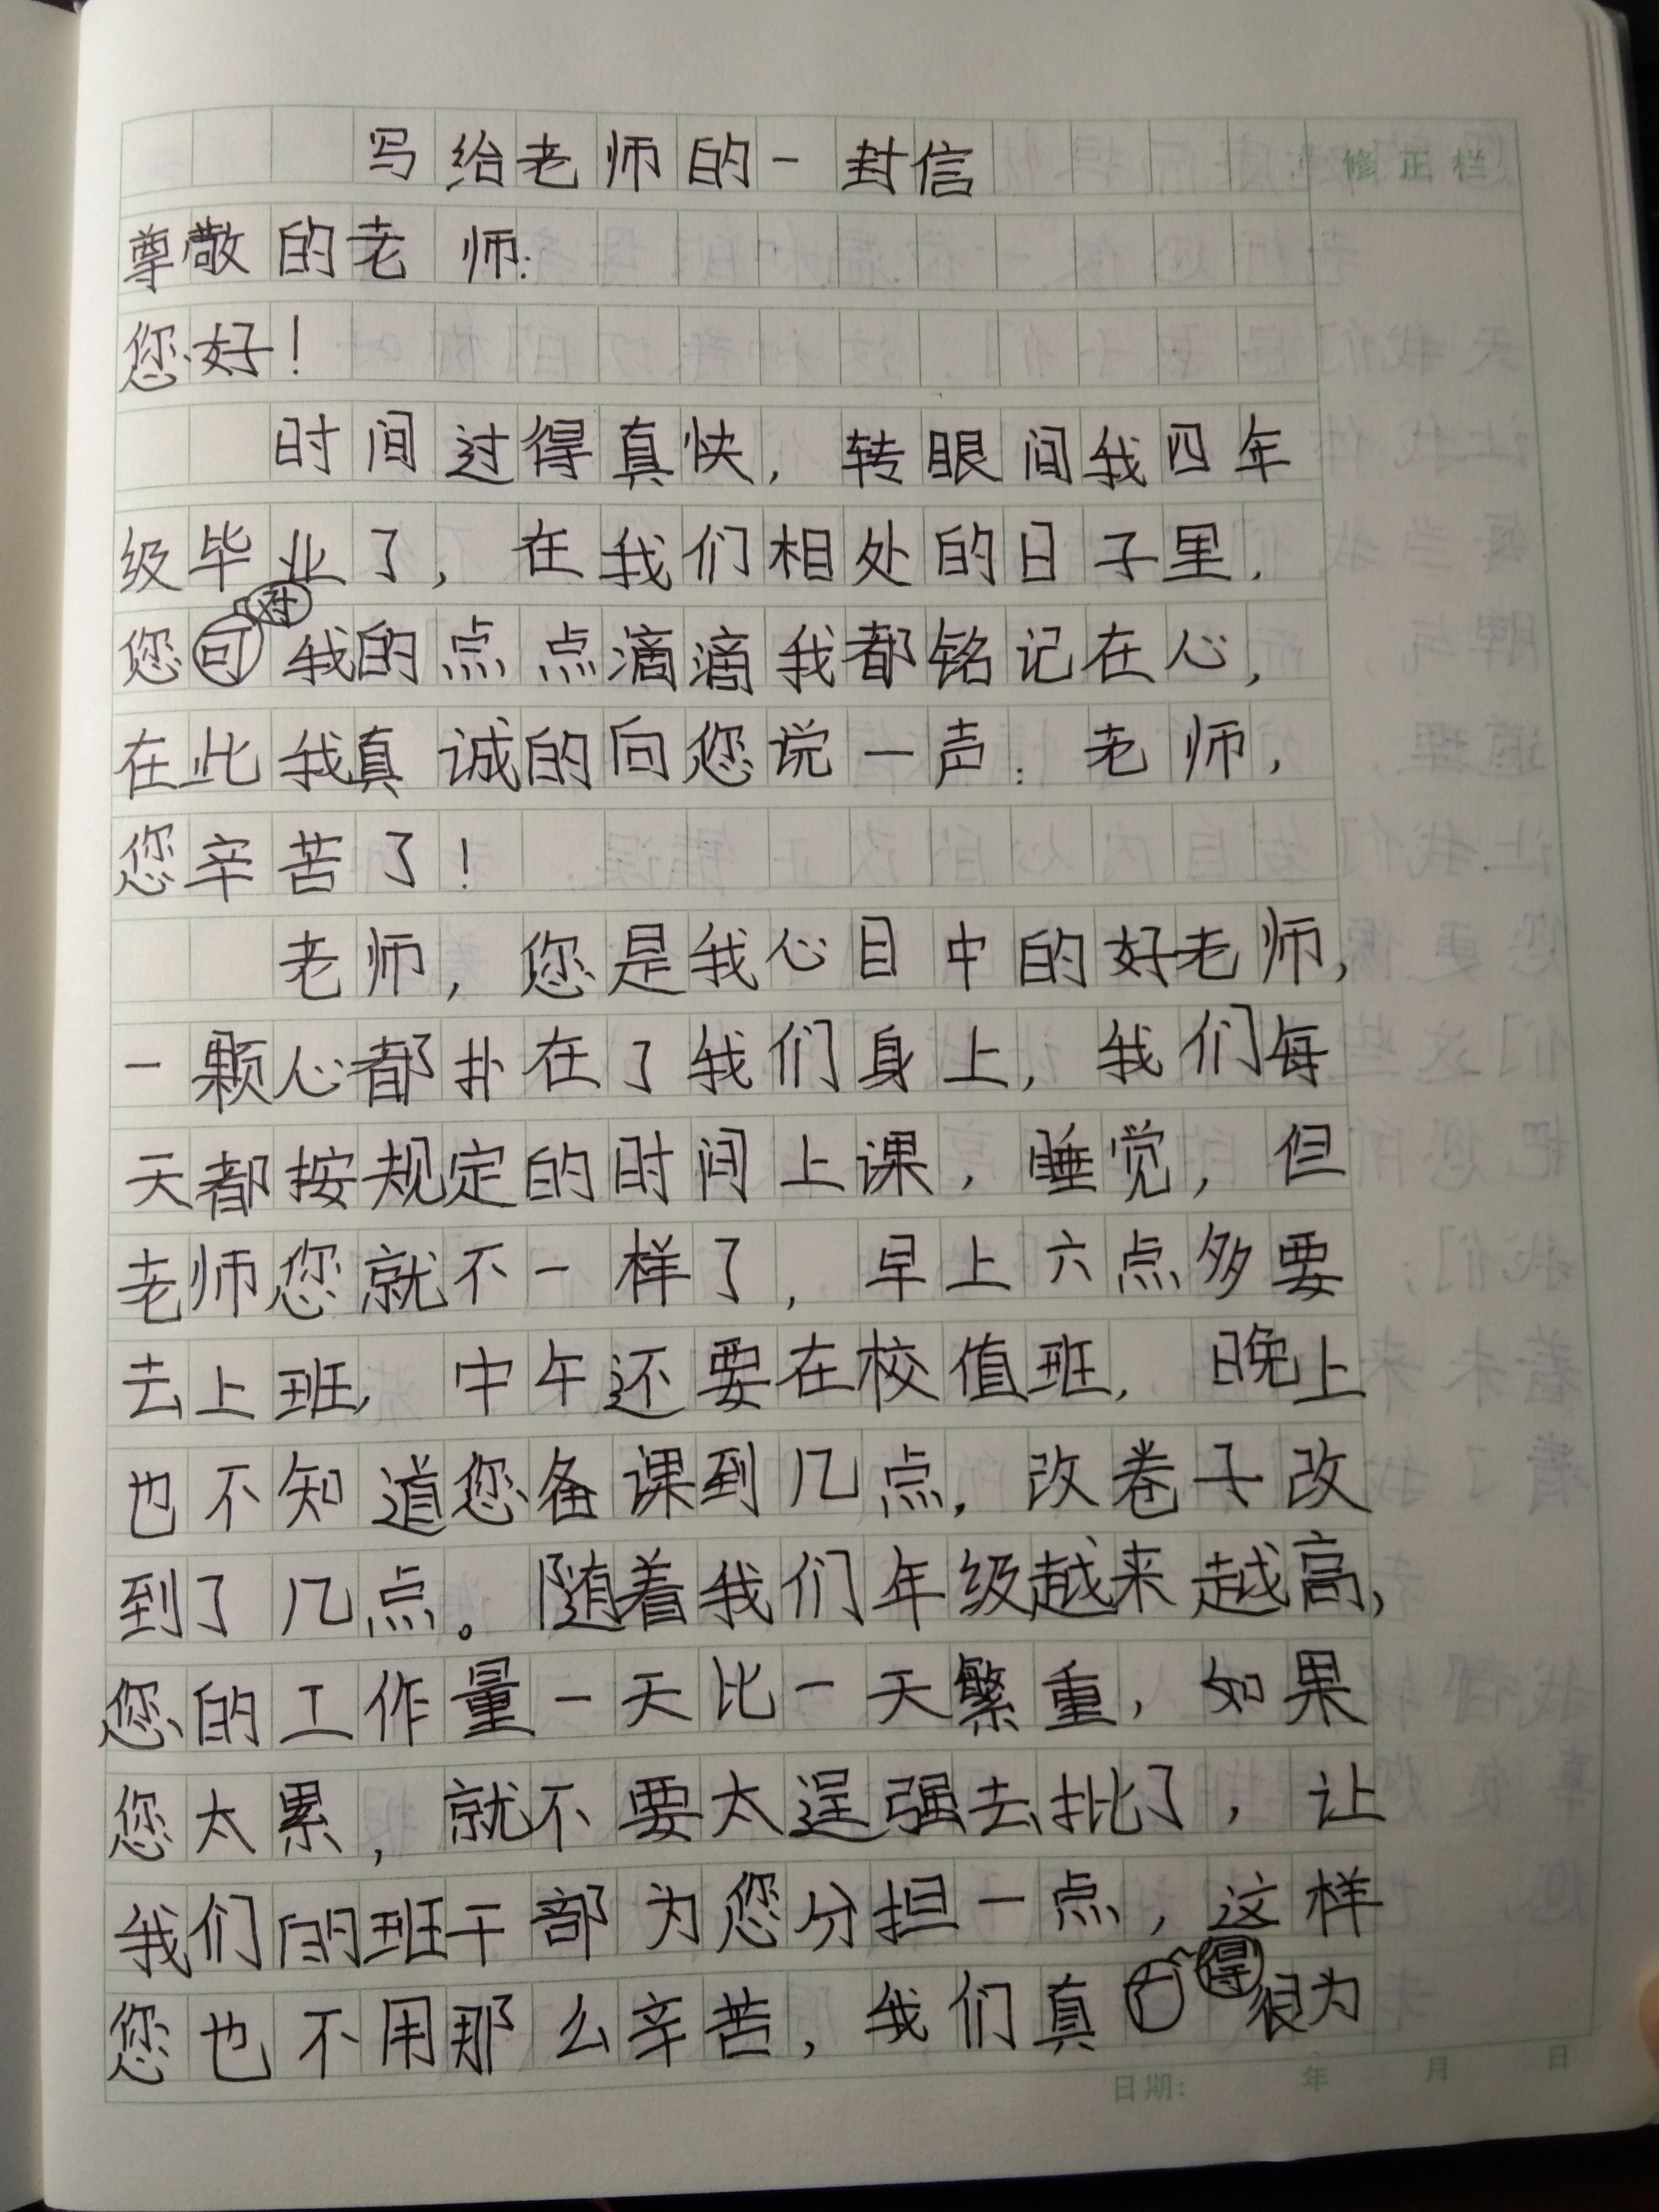 写给老师的一封信
修正栏
尊敬的老师:
您好!
时间过得真快,转眼间我四年
级毕业了,在我们相处的日子里,
您对我的点点滴滴我都铭记在心,
在此我真诚的向您说一声:老师,
您辛苦了!
老师,您是我心目中的好老师,
一颗心都扑在了我们身上,我们每
天都按规定的时间上课,睡觉,但
老师您就不一样了,早上六点多要
去上班,中午还要在校值班,晚上
也不知道您备课到几点,改卷子改
到了几点。随着我们年级越来越高,
您的工作量一天比一天繁重,如果
您太累,就不要太逞强去批了,让
我们的班干部为您分担一点,这样
您也不用那么辛苦,我们真得很为
日期: 年 月 日